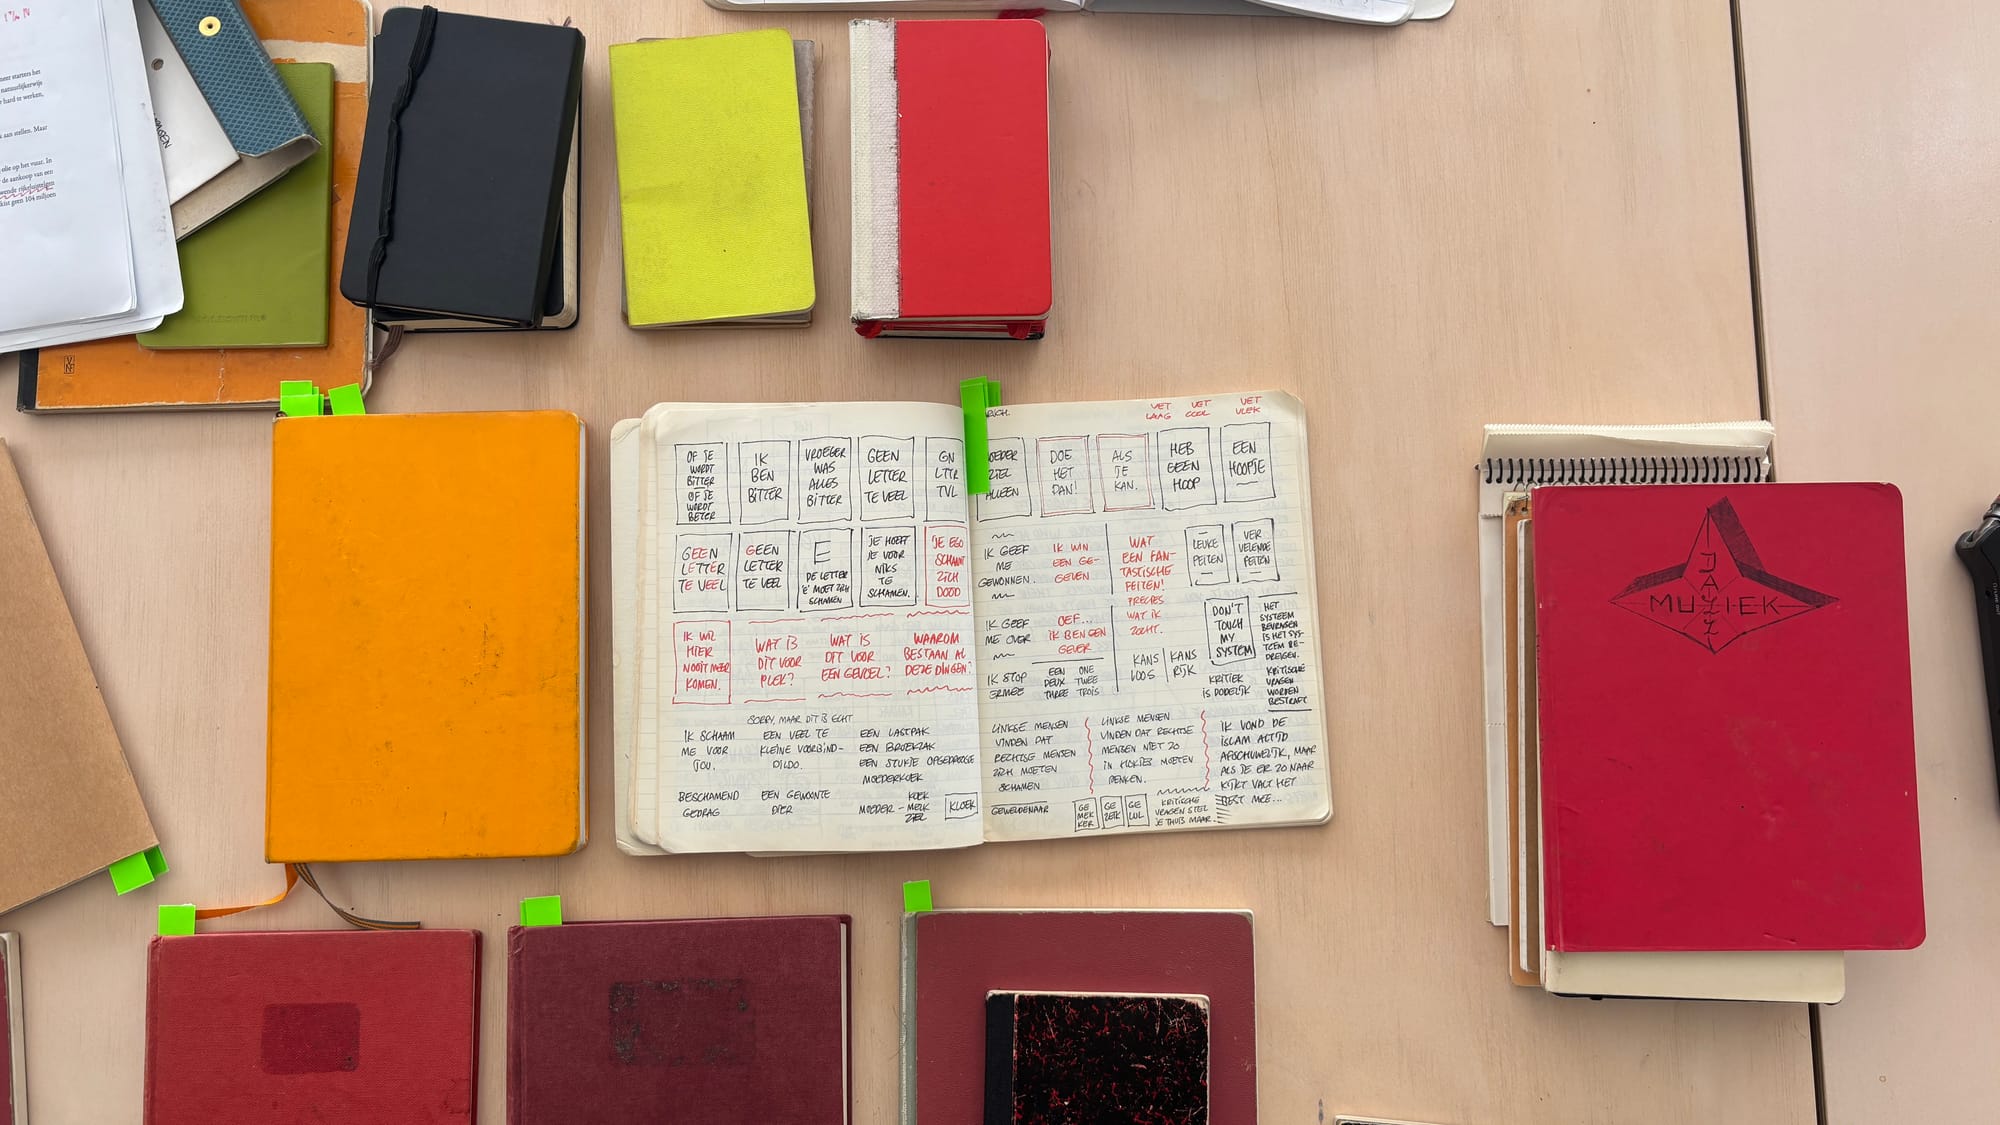 neer starters het
natuurlijkerwijs
hard te werken,
aan stellen. Maar
olie op het vuur. In
de aankoop van een
wende rijkeluistelgen
kist geen 104 miljoen
VNF
OF JE
WORDT
BITTER
OF JE
WORDT
BETER
IK
BEN
BITTER
VROEGER
WAS
ALLES
BITTER
GEEN
LETTER
TE VEEL
GN
LTTR
TVL
GEEN
LETTER
TE VEEL
GEEN
LETTER
TE VEEL
E
DE LETTER
'E' MOET ZICH
SCHAMEN
JE HOEFT
JE VOOR
NIKS
TE
SCHAMEN.
JE EGO
SCHAAMT
ZICH
DOOD
IK WIL
HIER
NOOIT MEER
KOMEN.
WAT IS
DIT VOOR
PLEK?
WAT IS
DIT VOOR
EEN GEVOEL?
WAAROM
BESTAAN AL
DEZE DINGEN?
IK SCHAAM
ME VOOR
JOU.
SORRY, MAAR DIT IS ECHT
EEN VEEL TE
KLEINE VOORBIND-
DILDO.
EEN LASTPAK
EEN BROEKZAK
EEN STUKJE OPGEDROOGDE
MOEDERKOEK
BESCHAMEND
GEDRAG
EEN GEWOONTE
DIER
MOEDER -
KOEK
MELK
ZIEL
KLOEK
VET
LAAG
VET
COOL
VET
VLEK
MOEDER
ZIEL
ALLEEN
DOE
HET
DAN!
ALS
JE
KAN.
HEB
GEEN
HOOP
EEN
HOOPJE
IK GEEF
ME
GEWONNEN.
IK WIN
EEN GE-
GEVEN
WAT
EEN FAN-
TASTISCHE
FEITEN!
PRECIES
WAT IK
ZOCHT.
LEUKE
FEITEN
VER
VELENDE
FEITEN
IK GEEF
ME OVER
OEF...
IK BEN EEN
GEVER
DON'T
TOUCH
MY
SYSTEM
HET
SYSTEEM
BEVRAGEN
IS HET SYS-
TEEM BE-
DREIGEN.
KRITISCHE
VRAGEN
WORDEN
BESTRAFT
IK STOP
ERMEE
EEN ONE
DEUX TWEE
THREE TROIS
KANS
LOOS
KANS
RIJK
KRITIEK
IS DODELIJK
LINKSE MENSEN
VINDEN DAT
RECHTSE MENSEN
ZICH MOETEN
SCHAMEN
LINKSE MENSEN
VINDEN DAT RECHTSE
MENSEN NIET ZO
IN HOKJES MOETEN
DENKEN.
IK VOND DE
ISLAM ALTIJD
AFSCHUWELIJK, MAAR
ALS JE ER ZO NAAR
KIJKT VALT HET
BEST MEE...
GEWELDENAAR
GE
MEK
KER
GE
ZEIK
GE
LUL
KRITISCHE
VRAGEN STEL
JE THUIS MAAR.
MUZIEK